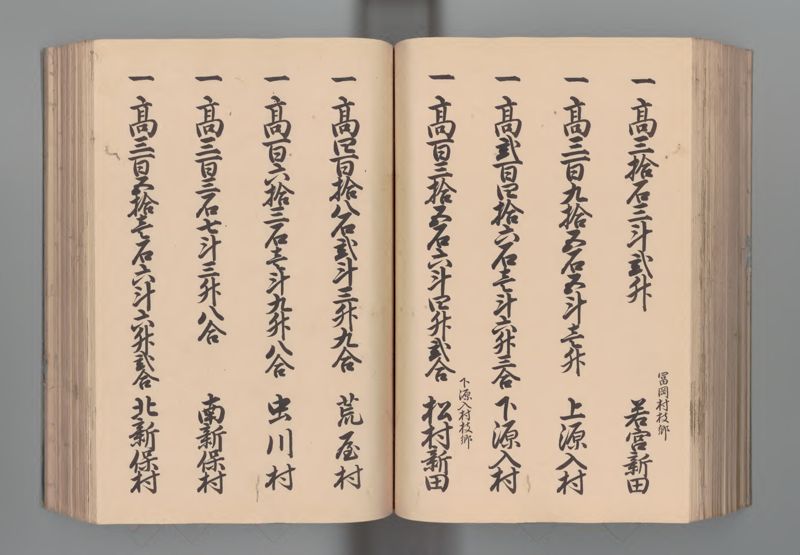 一 高三拾石三斗弐升 冨岡村枝郷 若宮新田
一 高三百九拾五石五斗壱升 上源入村
一 高弐百四拾六石壱斗六升三合 下源入村
一 高百三拾五石六斗四升弐合 下源入村枝郷 松村新田
一 高四百拾八石弐斗三升九合 荒屋村
一 高百六拾三石壱斗九升八合 虫川村
一 高三百三石七斗三升八合 南新保村
一 高三百五拾壱石六斗六升弐合 北新保村